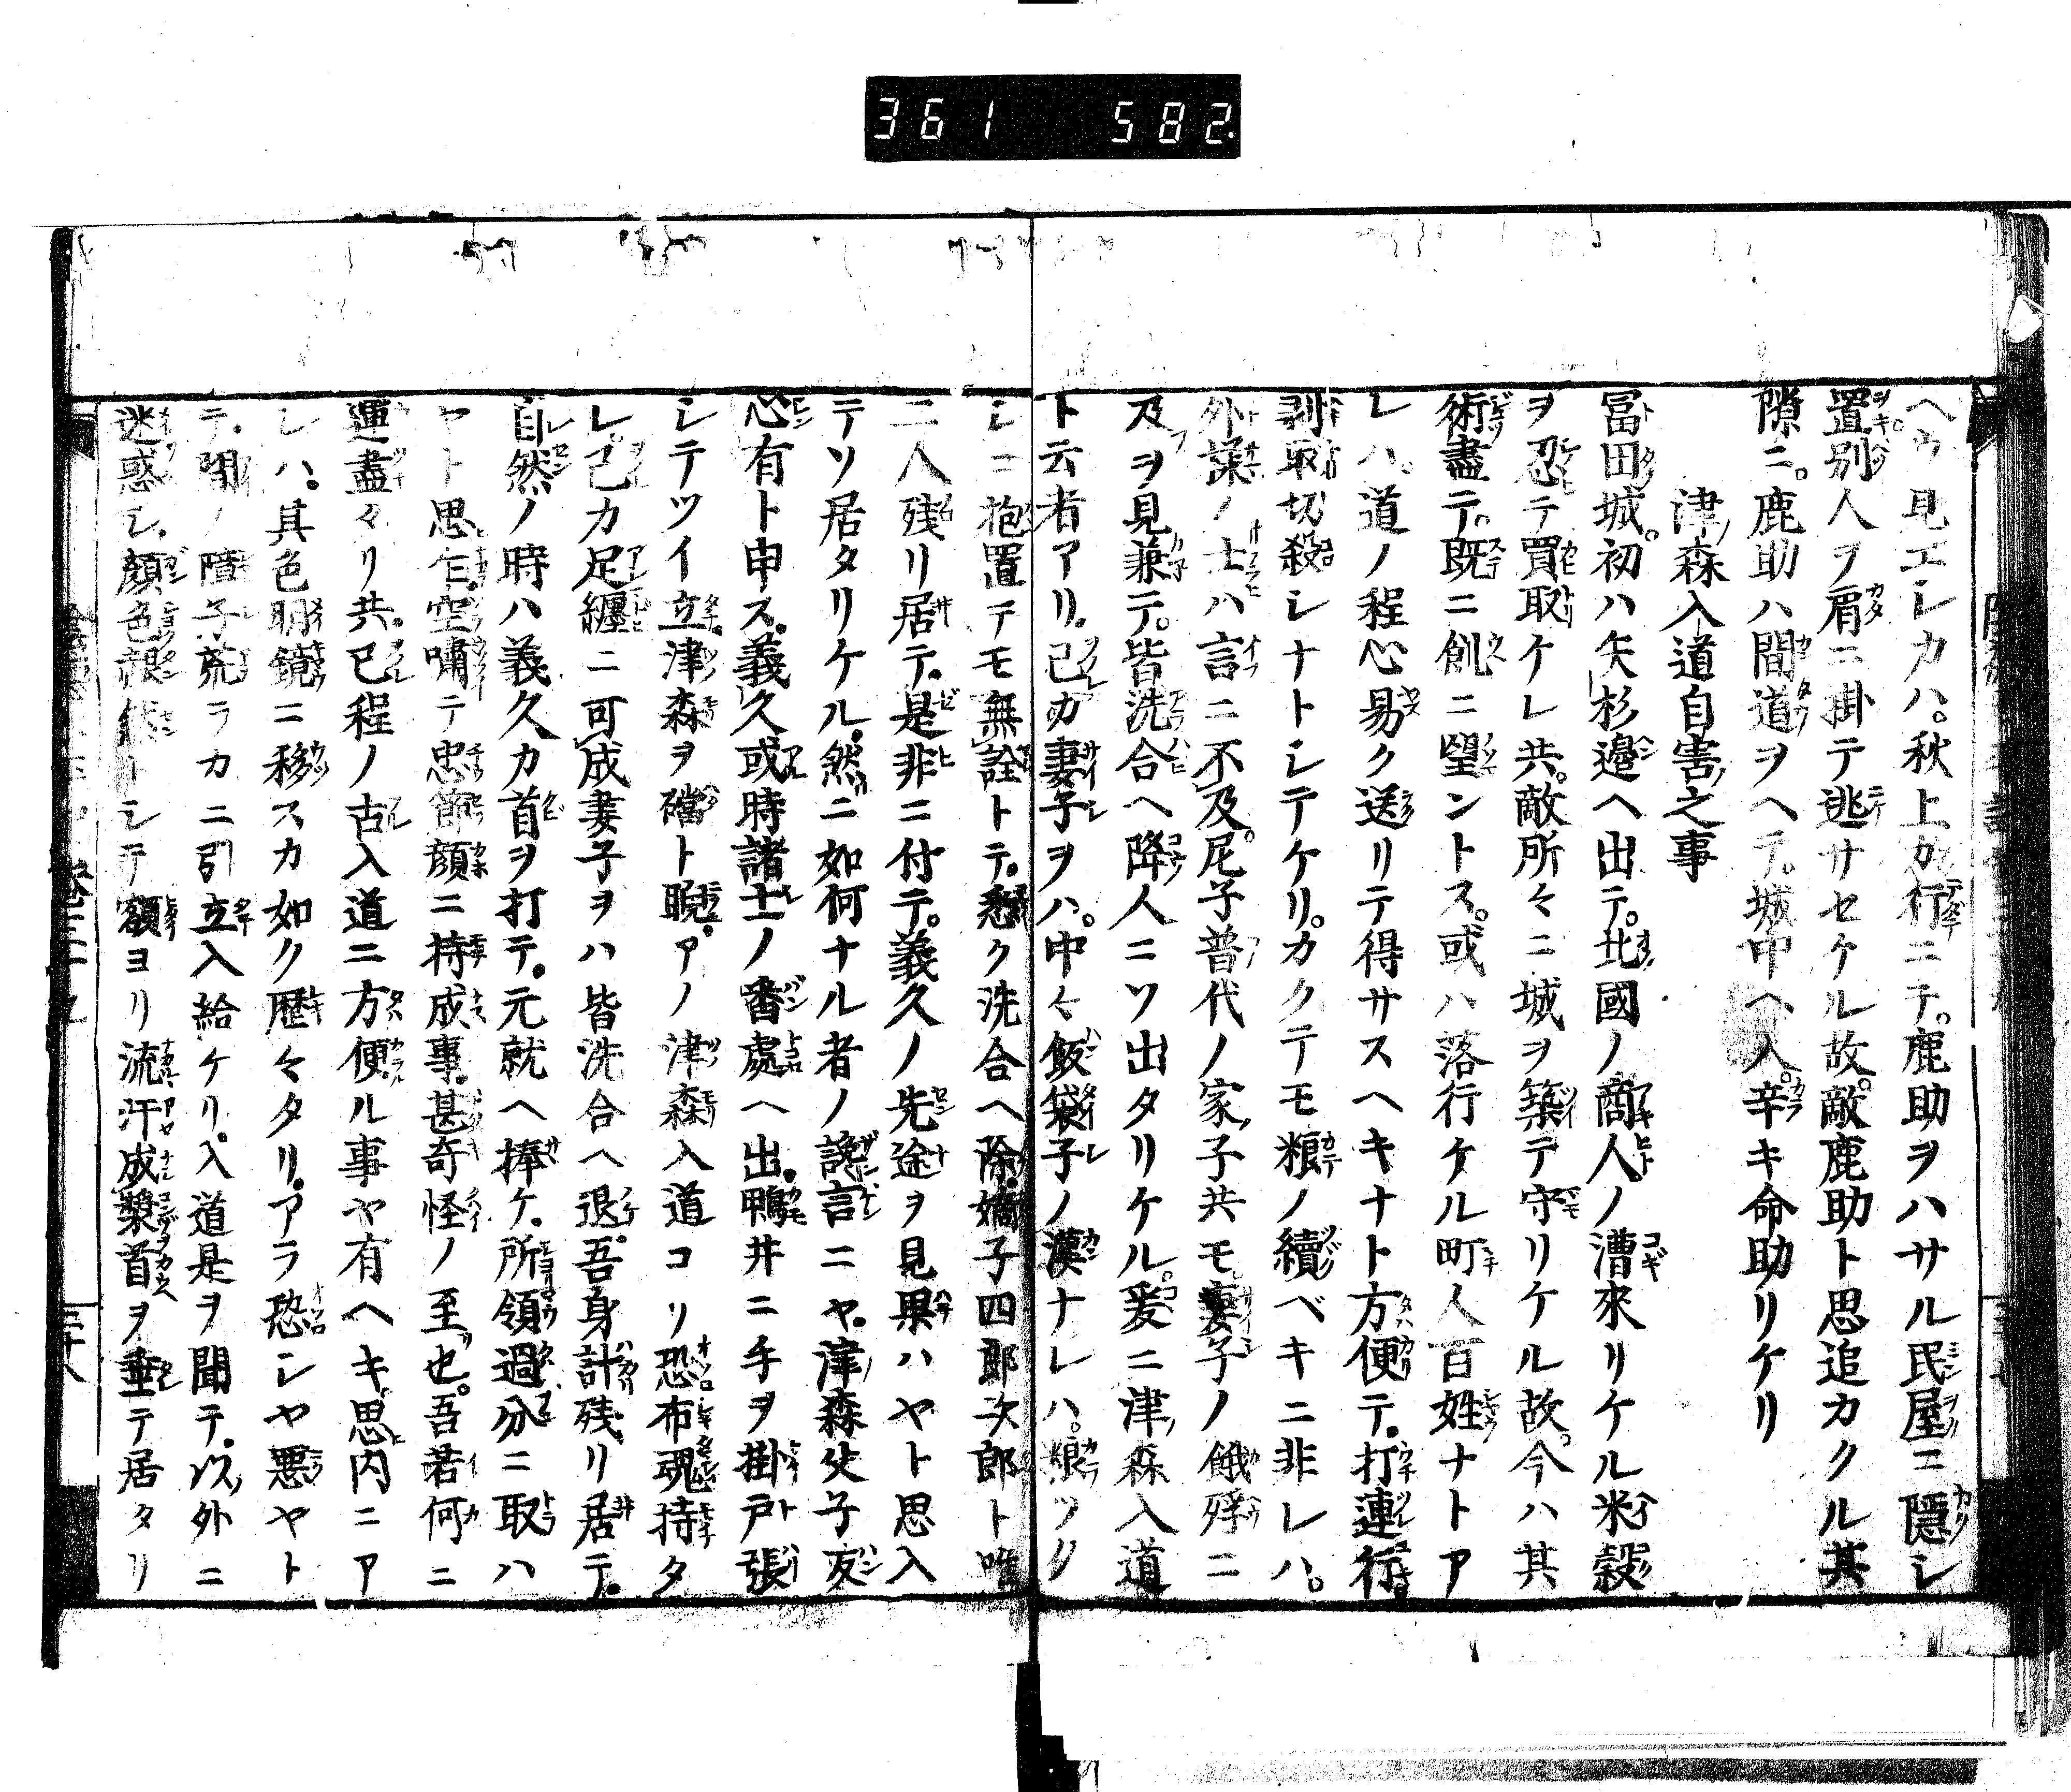 361 582
ヘウ見エシカハ。秋上カ行ニテ。鹿助ヲハサル民屋ニ隠シ
置別人ヲ肩ニ掛テ逃サセケル故。敵鹿助ト思追カクル其
隙ニ。鹿助ハ間道ヲヘテ。城中ヘ入。辛キ命助リケリ
津森入道自害之事
冨田城。初ハ矢杉邊ヘ出テ。北國ノ商人ノ漕來リケル米穀
ヲ忍テ買取ケレ共。敵所々ニ城ヲ築テ守リケル故。今ハ其
術盡テ。既ニ飢ニ望ントス。或ハ落行ケル町人百姓ナトア
レハ。道ノ程心易ク送リテ得サスヘキナト方便テ。打連行
剥取切殺シナトシテケリ。カクテモ粮ノ續ベキニ非レハ。
外様ノ士ハ言ニ不及。尼子普代ノ家子共モ。妻子ノ餓殍ニ
及ヲ見兼テ。皆洗合ヘ降人ニソ出タリケル。爰ニ津森入道
ト云者アリ。己カ妻子ヲハ。中々飯袋子ノ漢ナレハ。粮ツク
シニ抱置テモ無詮トテ。悉ク洗合ヘ除。嫡子四郎次郎ト唯
二人残リ居テ。是非ニ付テ。義久ノ先途ヲ見果ハヤト思入
テソ居タリケル。然ニ如何ナル者ノ讒言ニヤ。津森父子友
心有ト申ス。義久或時諸士ノ番處ヘ出。鴨井ニ手ヲ掛戸張
シテツイ立。津森ヲ礑ト睨。アノ津森入道コソ恐布魂持タ
レ。己カ足纏ニ可成妻子ヲハ皆洗合ヘ退。吾身計残リ居テ。
自然ノ時ハ義久カ首ヲ打テ。元就ヘ捧ケ。所領過分ニ取ハ
ヤト思乍。空嘯テ忠節顔ニ持成事。甚奇怪ノ至也。吾若何ニ
運盡タリ共。己程ノ古入道ニ方便ル事ヤ有ヘキ。思内ニア
レハ。其色明鏡ニ移スカ如ク歴々タリ。アラ恐シヤ悪ヤト
テ。間ノ障子荒ラカニ引立入給ケリ。入道是ヲ聞テ。以外ニ
迷惑シ。顔色トシテ額ヨリ流汗成漿首ヲ垂テ居タリ